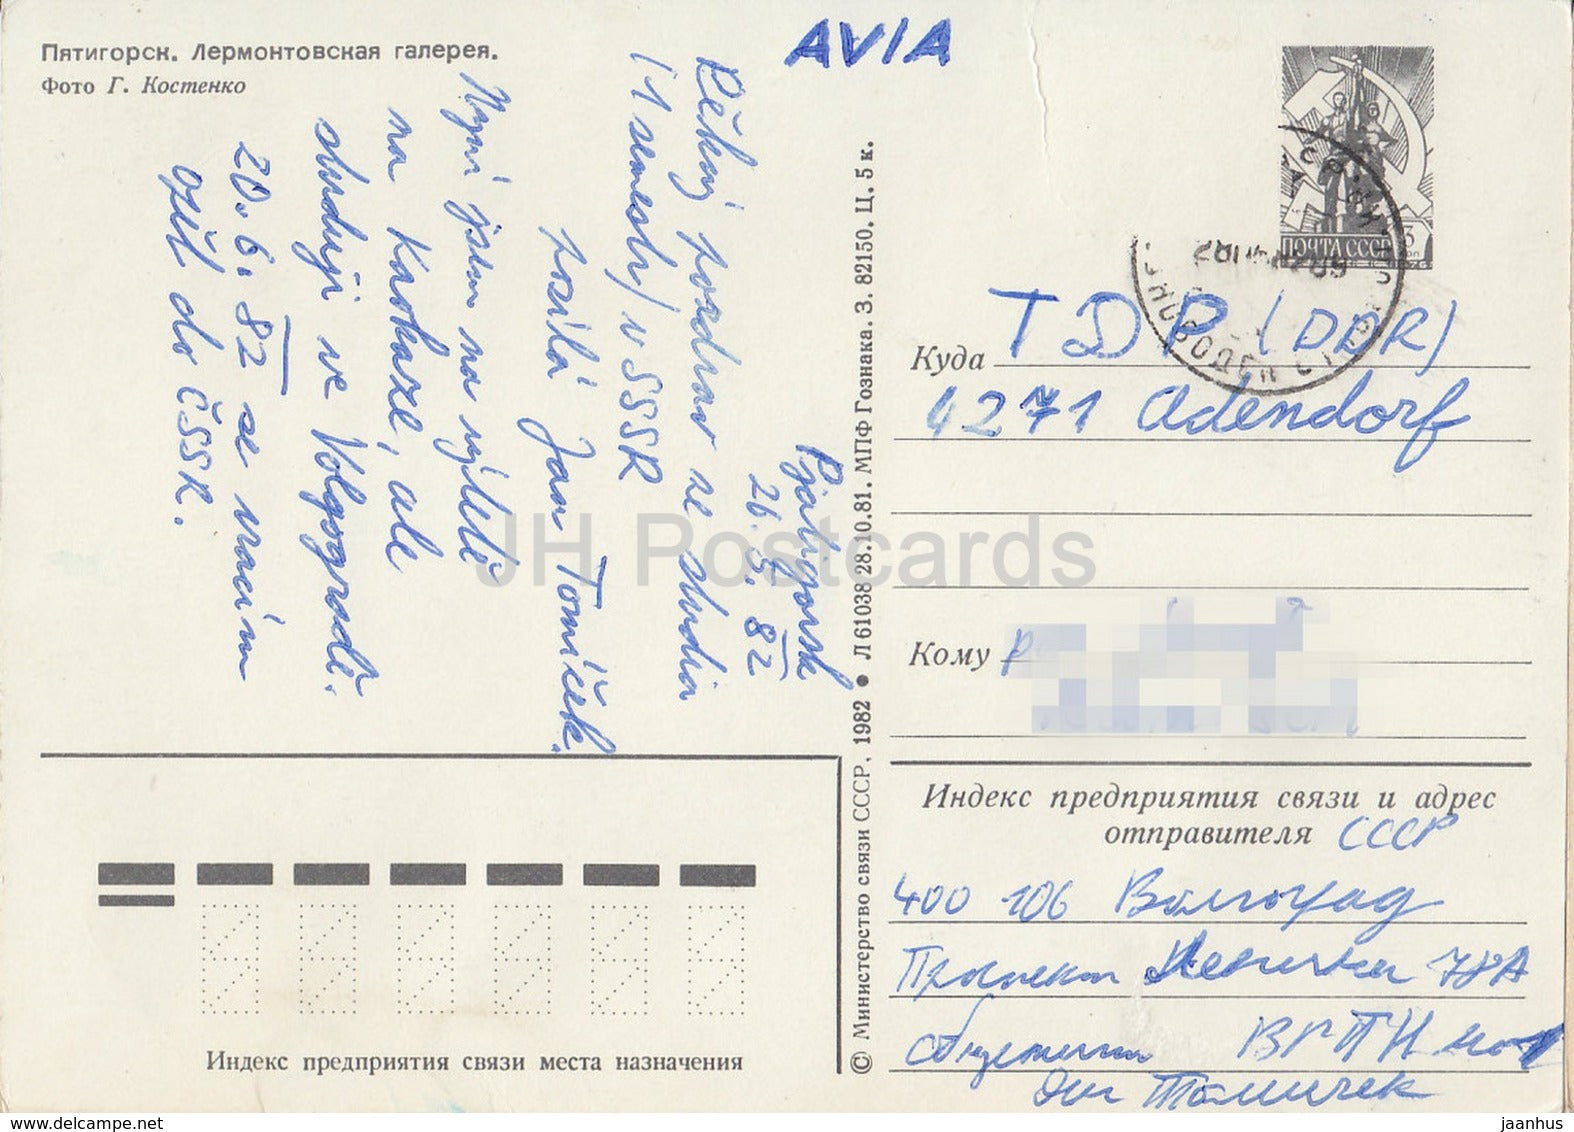 Пятигорск. Лермонтовская галерея.
Фото Г. Костенко
AVIA
Pjatigorsk
26. 5. 82
Pěkný pozdrav ze studia
(1 semestr) v SSSR
posílá Jan Tomíček.
Nyní jsem na výletě
na Kavkaze, ale
studuji ve Volgogradě.
20. 6. 82 se vracím
opět do ČSSR.
© Министерство связи СССР, 1982 • Л 61038 28.10.81. МПФ Гознака. З. 82150. Ц. 5 к.
ПОЧТА СССР
Куда TDR (DDR)
4271 Adendorf
Кому
Индекс предприятия связи и адрес
отправителя СССР
400 106 Волгоград
Проспект Ленина 78А
общежитие ВГПИ но 1
Ян Томичек
Индекс предприятия связи места назначения
JH Postcards
www.delcampe.net
jaanhus